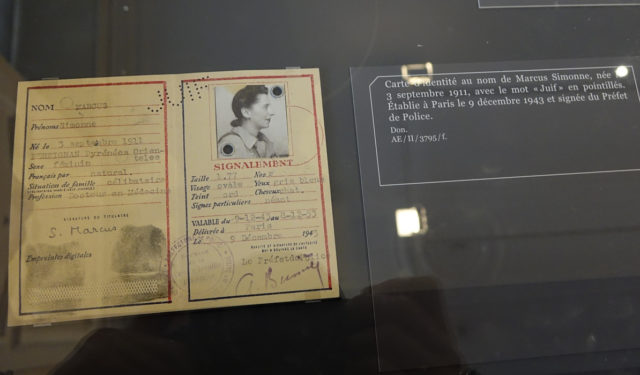 NOM MARCUS
Prénoms Simonne
Né le 3 septembre 1911
Pyrénées Orien-
tales
Sexe féminin
Français par natural.
Situation de famille célibataire
Profession Docteur en Médecine
SIGNATURE DU TITULAIRE
S. Marcus
Empreintes digitales
JUIF
SIGNALEMENT
Taille 1.77 Nez
Visage ovale Yeux gris bleu
Teint ord Cheveux chat.
Signes particuliers néant
VALABLE du 9-12-43 au 8-12-53
Délivrée à Paris
Le 9 Décembre 1943
Le Préfet
Carte d'identité au nom de Marcus Simonne, née
3 septembre 1911, avec le mot « Juif » en pointillés.
Établie à Paris le 9 décembre 1943 et signée du Préfet
de Police.
Don.
AE/II/3795/f.